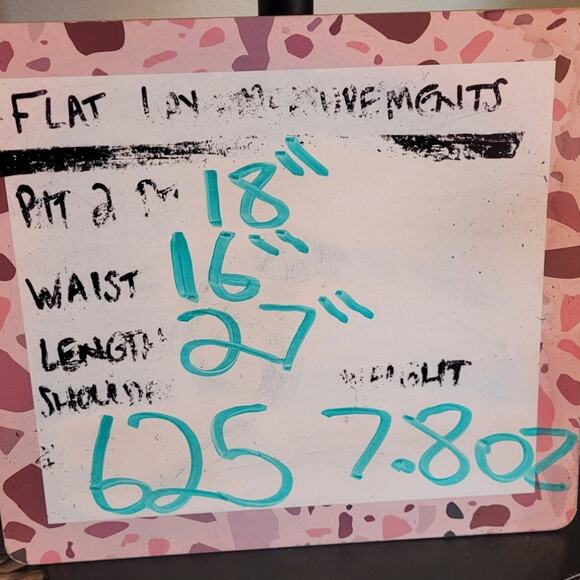 FLAT LAY MEASUREMENTS
PIT 2 PIT 18"
WAIST 16"
LENGTH 27"
SHOULDER WEIGHT
625 7.8OZ